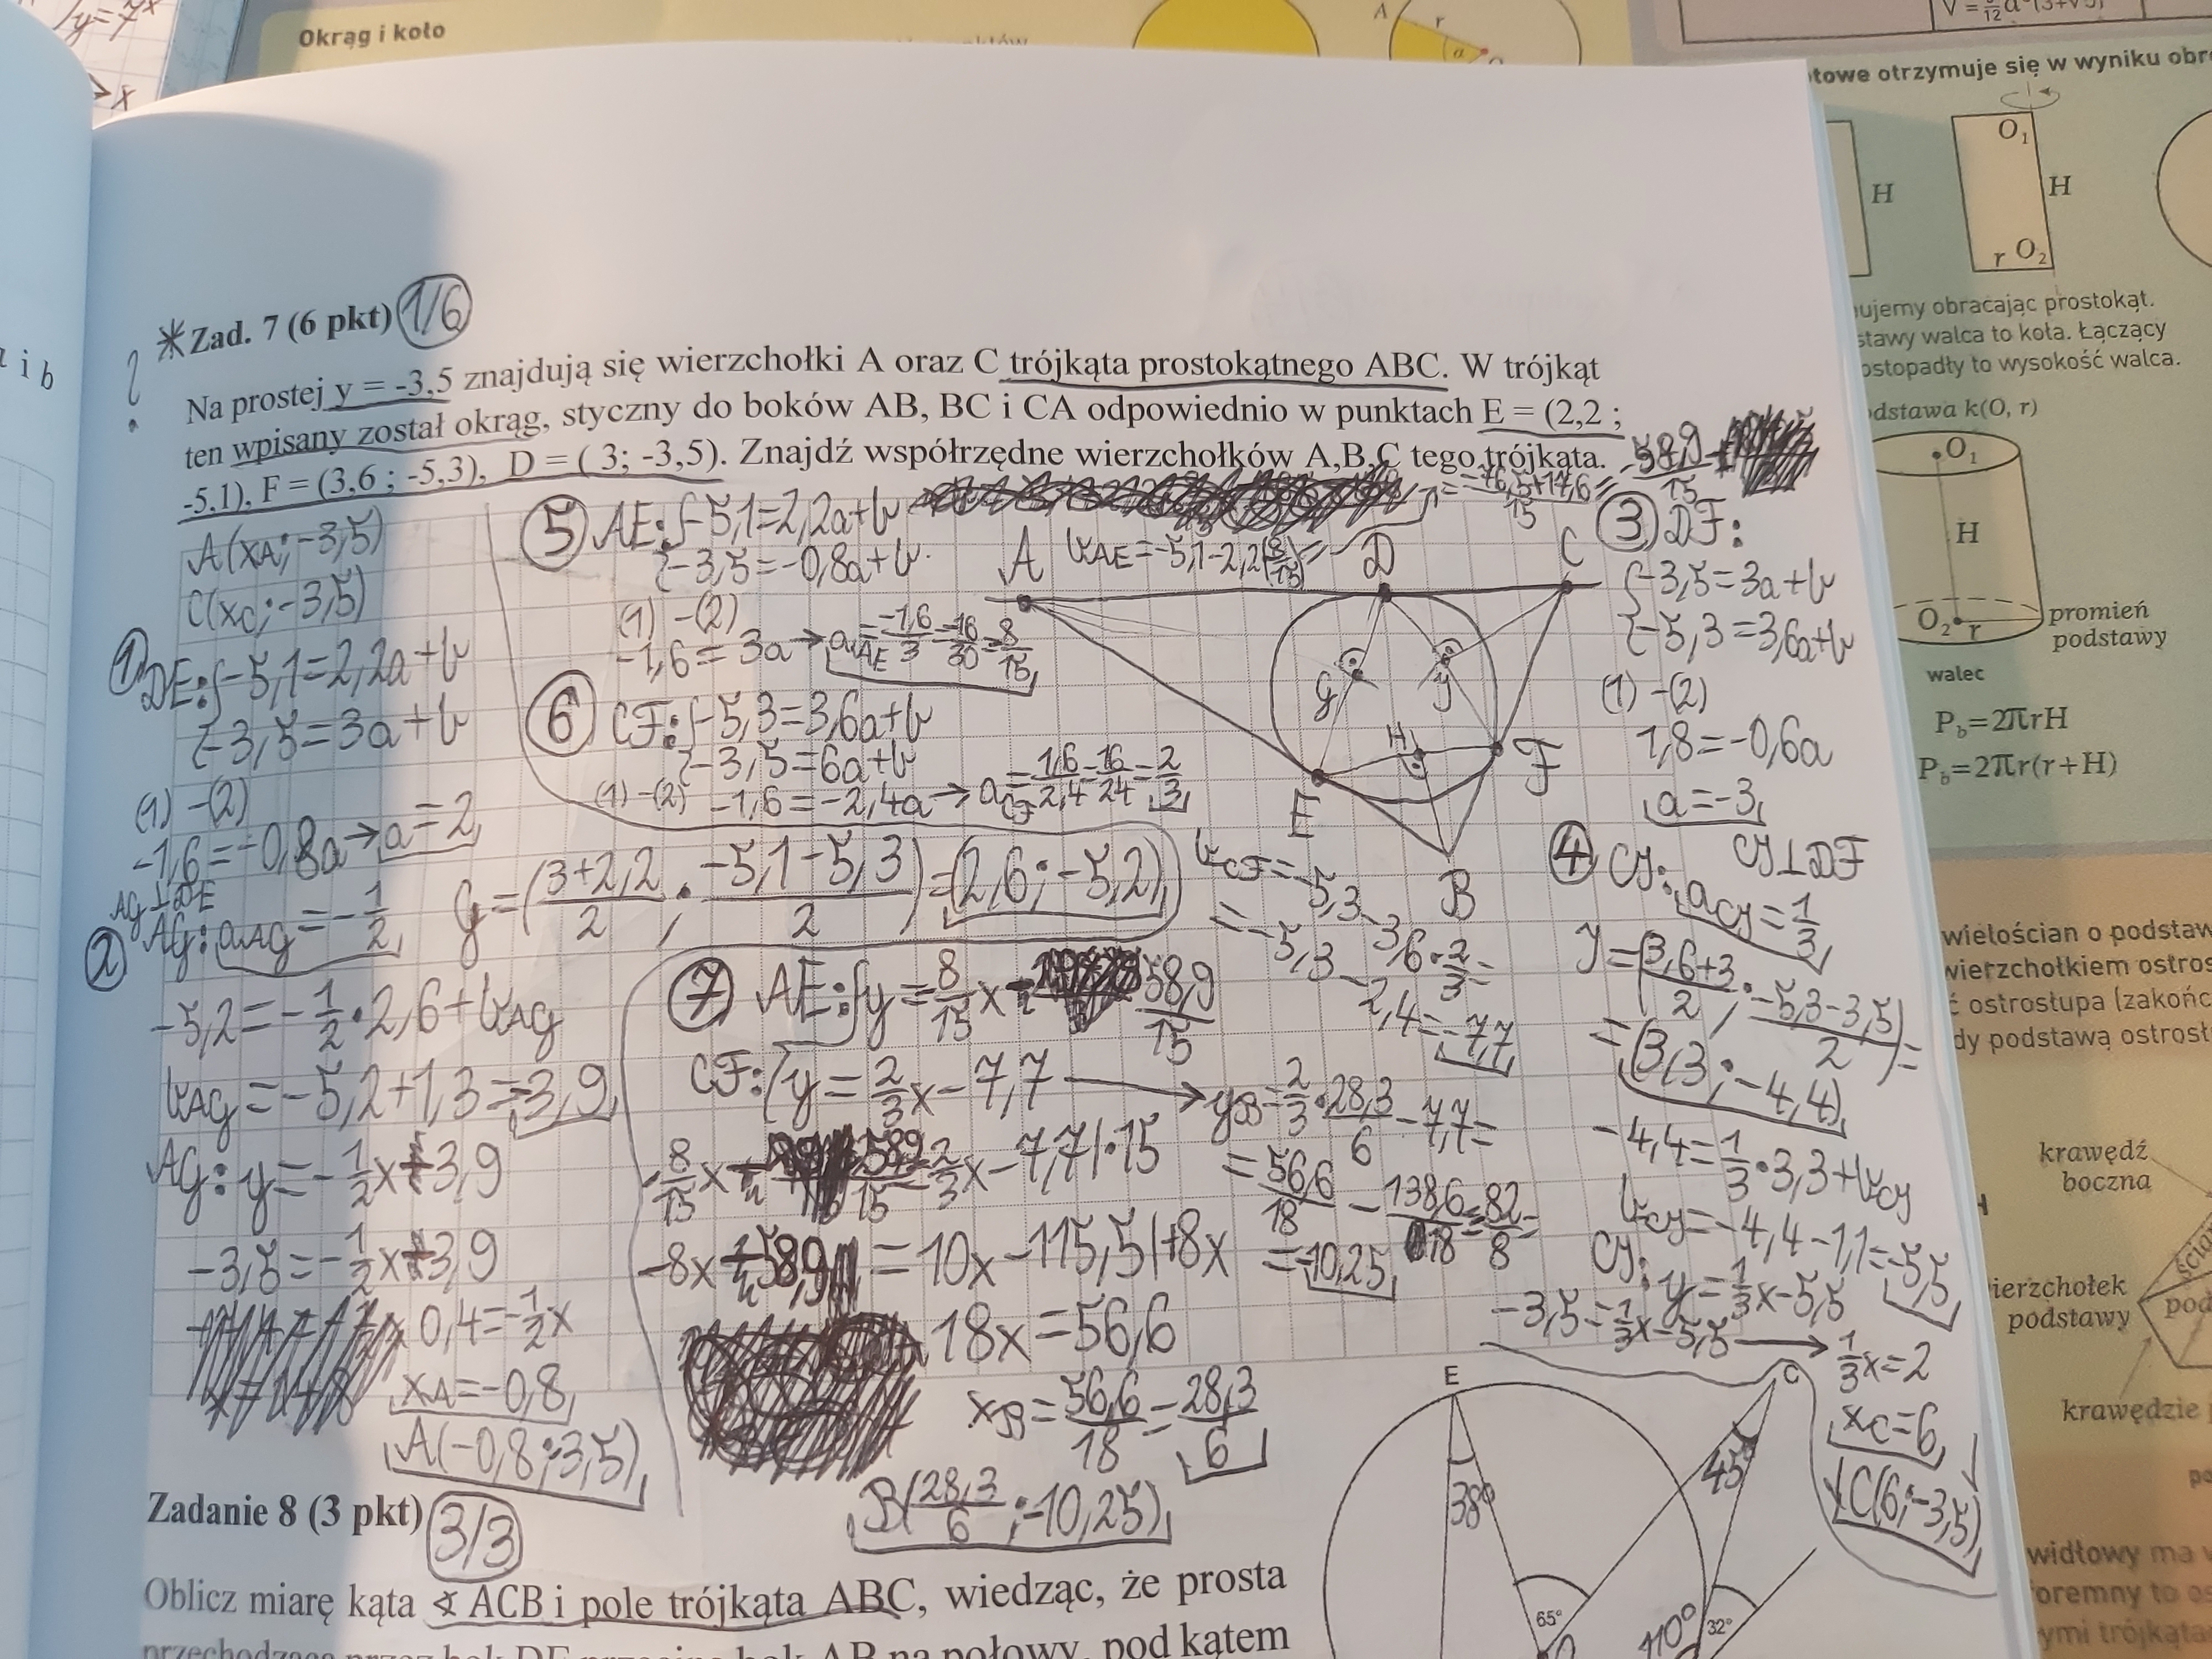 y=7^x
x
Okrąg i koło
A
r
α
i b
towe otrzymuje się w wyniku obr
O₁
H
H
r O₂
*Zad. 7 (6 pkt) 1/6
Na prostej y = -3,5 znajdują się wierzchołki A oraz C trójkąta prostokątnego ABC. W trójkąt
ten wpisany został okrąg, styczny do boków AB, BC i CA odpowiednio w punktach E = (2,2 ;
-5,1), F = (3,6 ; -5,3), D = ( 3; -3,5). Znajdź współrzędne wierzchołków A,B,C tego trójkąta.
A(xA; -3,5)
C(xC; -3,5)
① DE: {-5,1=2,2a+b
{-3,5=3a+b
(1)-(2)
-1,6=-0,8a → a=2
AG⊥DE
② AG: aAG=-1/2
G=(3+2,2/2 ; -5,1-5,3/2)=(2,6;-5,2)
-5,2=-1/2·2,6+bAG
bAG=-5,2+1,3=-3,9
AG: y=-1/2x-3,9
-3,5=-1/2x-3,9
0,4=-1/2x
xA=-0,8
A(-0,8;-3,5)
⑤ AE: {-5,1=2,2a+b
{-3,5=-0,8a+b
(1)-(2)
-1,6=3a → aAE=-1,6/3=-16/30=-8/15
bAE=-5,1-2,2(8/15)=
=-76,5+17,6/15=-58,9/15
⑥ CF: {-5,3=3,6a+b
{-3,5=6a+b
(1)-(2) -1,6=-2,4a → aCF=1,6/2,4=16/24=2/3
bCF=-5,3-3,6·2/3=
=-5,3-2,4=-7,7
⑦ AE: {y=8/15x-58,9/15
CF: {y=2/3x-7,7 → yB=2/3·28,3/6-7,7=
-8/15x-58,9/15=2/3x-7,7/·15
=56,6/18-138,6/18=-82/8=
-8x-58,9=10x-115,5/+8x
=-10,25
18x=56,6
xB=56,6/18=28,3/6
B(28,3/6;-10,25)
A
D
C
G
J
H
F
E
B
③ DF:
{-3,5=3a+b
{-5,3=3,6a+b
(1)-(2)
1,8=-0,6a
a=-3
④ CJ: CJ⊥DF
aCJ=1/3
J=(3,6+3/2 ; -5,3-3,5/2)=
=(3,3;-4,4)
-4,4=1/3·3,3+bCJ
bCJ=-4,4-1,1=-5,5
CJ: y=1/3x-5,5
-3,5=1/3x-5,5 → 1/3x=2
xC=6
C(6;-3,5)
Zadanie 8 (3 pkt) 3/3
Oblicz miarę kąta ∢ ACB i pole trójkąta ABC, wiedząc, że prosta
przechodząca przez bok DE przecina bok AB na połowy, pod kątem
E
C
38°
45°
65°
110°
32°
ujemy obracając prostokąt.
stawy walca to koła. Łączący
ostopadły to wysokość walca.
dstawa k(O, r)
O₁
H
O₂ r
promień
podstawy
walec
P_b=2πrH
P_b=2πr(r+H)
wielościan o podstaw
wierzchołkiem ostros
ć ostrosłupa (zakońc
dy podstawą ostrosł
krawędź
boczna
ierzchołek
podstawy
pod
krawędzie
widłowy ma
oremny to os
ymi trójkąta